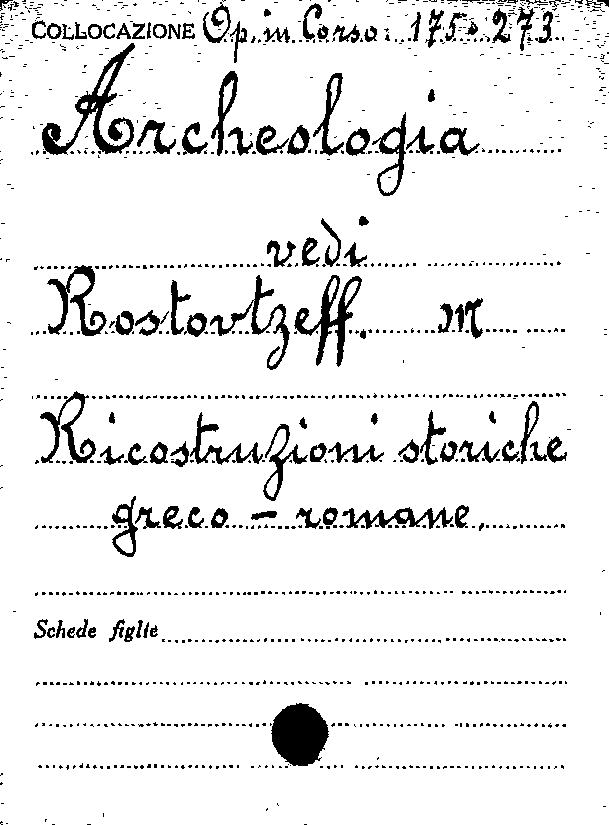 COLLOCAZIONE Op. in Corso: 175 273
Archeologia
vedi
Rostovtzeff. M
Ricostruzioni storiche
greco – romane.
Schede figlie